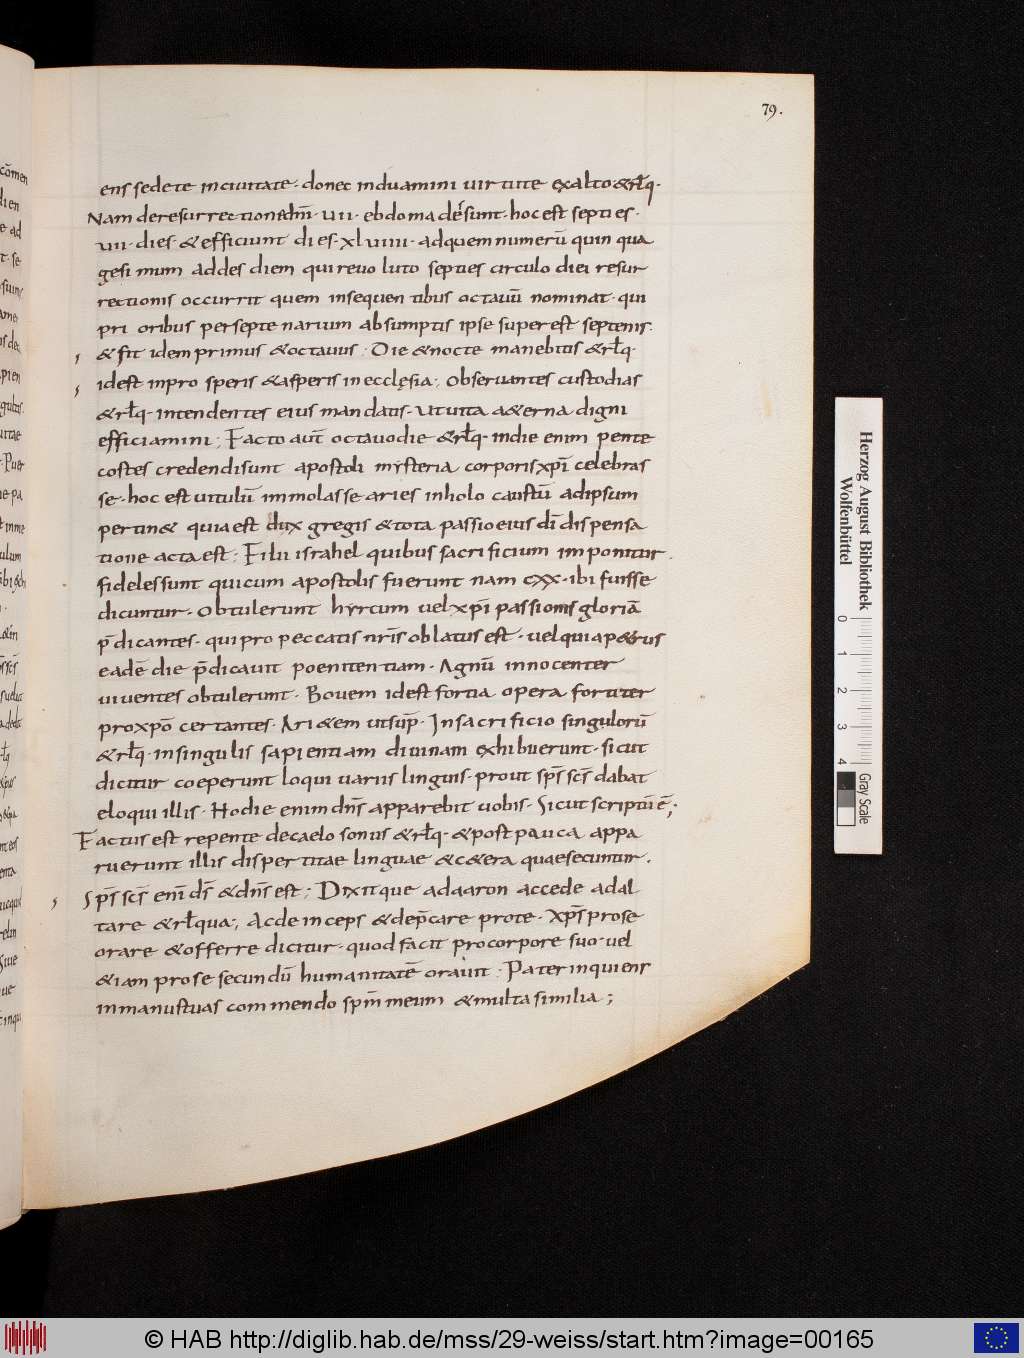 79.
ens sedete in ciuitate· donec induamini uirtute ex alto & rłq·
Nam de resurrectione dn̄i· uii· ebdomadę sunt· hoc est septies·
uii· dies· & efficiunt dies· xluiiii· ad quem numerū quinqua
gesimum addes diem qui reuoluto septies circulo diei resur
rectionis occurrit quem insequentibus octauū nominat· qui
prioribus per septenarium absumptis ipse superest septenis·
& fit idem primus & octauus; Die & nocte manebitis & rłq·
id est in prosperis & asperis in ecclęsia; Obseruantes custodias
& rłq· intendentes eius mandatis· ut uita aeterna digni
efficiamini; Facto aut̄ octauo die & rłq· in die enim pente
costes credendi sunt apostoli mysteria corporis xp̄i celebras
se· hoc est uitulū immolasse aries in holocaustū ad ipsum
pertin& quia est dux gregis & tota passio eius dī dispensa
tione acta est; Filii israhel quibus sacrificium imponitur·
fideles sunt qui cum apostolis fuerunt nam cxx· ibi fuisse
dicuntur· Obtulerunt hyrcum uel xp̄i passionis gloriā
p̄dicantes· qui pro peccatis nr̄is oblatus est· uel quia p&rus
eadē die p̄dicauit poenitentiam· Agnū innocenter
uiuentes obtulerunt· Bouem id est fortia opera fortiter
pro xp̄o certantes· Ari&em ut sup̄· In sacrificio singulorū
& rłq· in singulis sapientiam diuinam exhibuerunt· sicut
dicitur coeperunt loqui uariis linguis· prout sp̄s sc̄s dabat
eloqui illis· Hodie enim dn̄s apparebit uobis· Sicut scriptū ē;
Factus est repente de caelo sonus & rłq· & post pauca appa
ruerunt illis dispertitae linguae & c&era quae secuntur·
Sp̄s sc̄s enī ds̄ & dn̄s est; Dixitque ad aaron accede ad al
tare & rłqua; Ac deinceps & dep̄care pro te· Xp̄s pro se
orare & offerre dicitur· quod facit pro corpore suo· uel
&iam pro se secundū humanitatē orauit· Pater inquiens
in manus tuas commendo sp̄m meum & multa similia;
Herzog August Bibliothek
Wolfenbüttel
0 1 2 3 4
Gray Scale
© HAB http://diglib.hab.de/mss/29-weiss/start.htm?image=00165